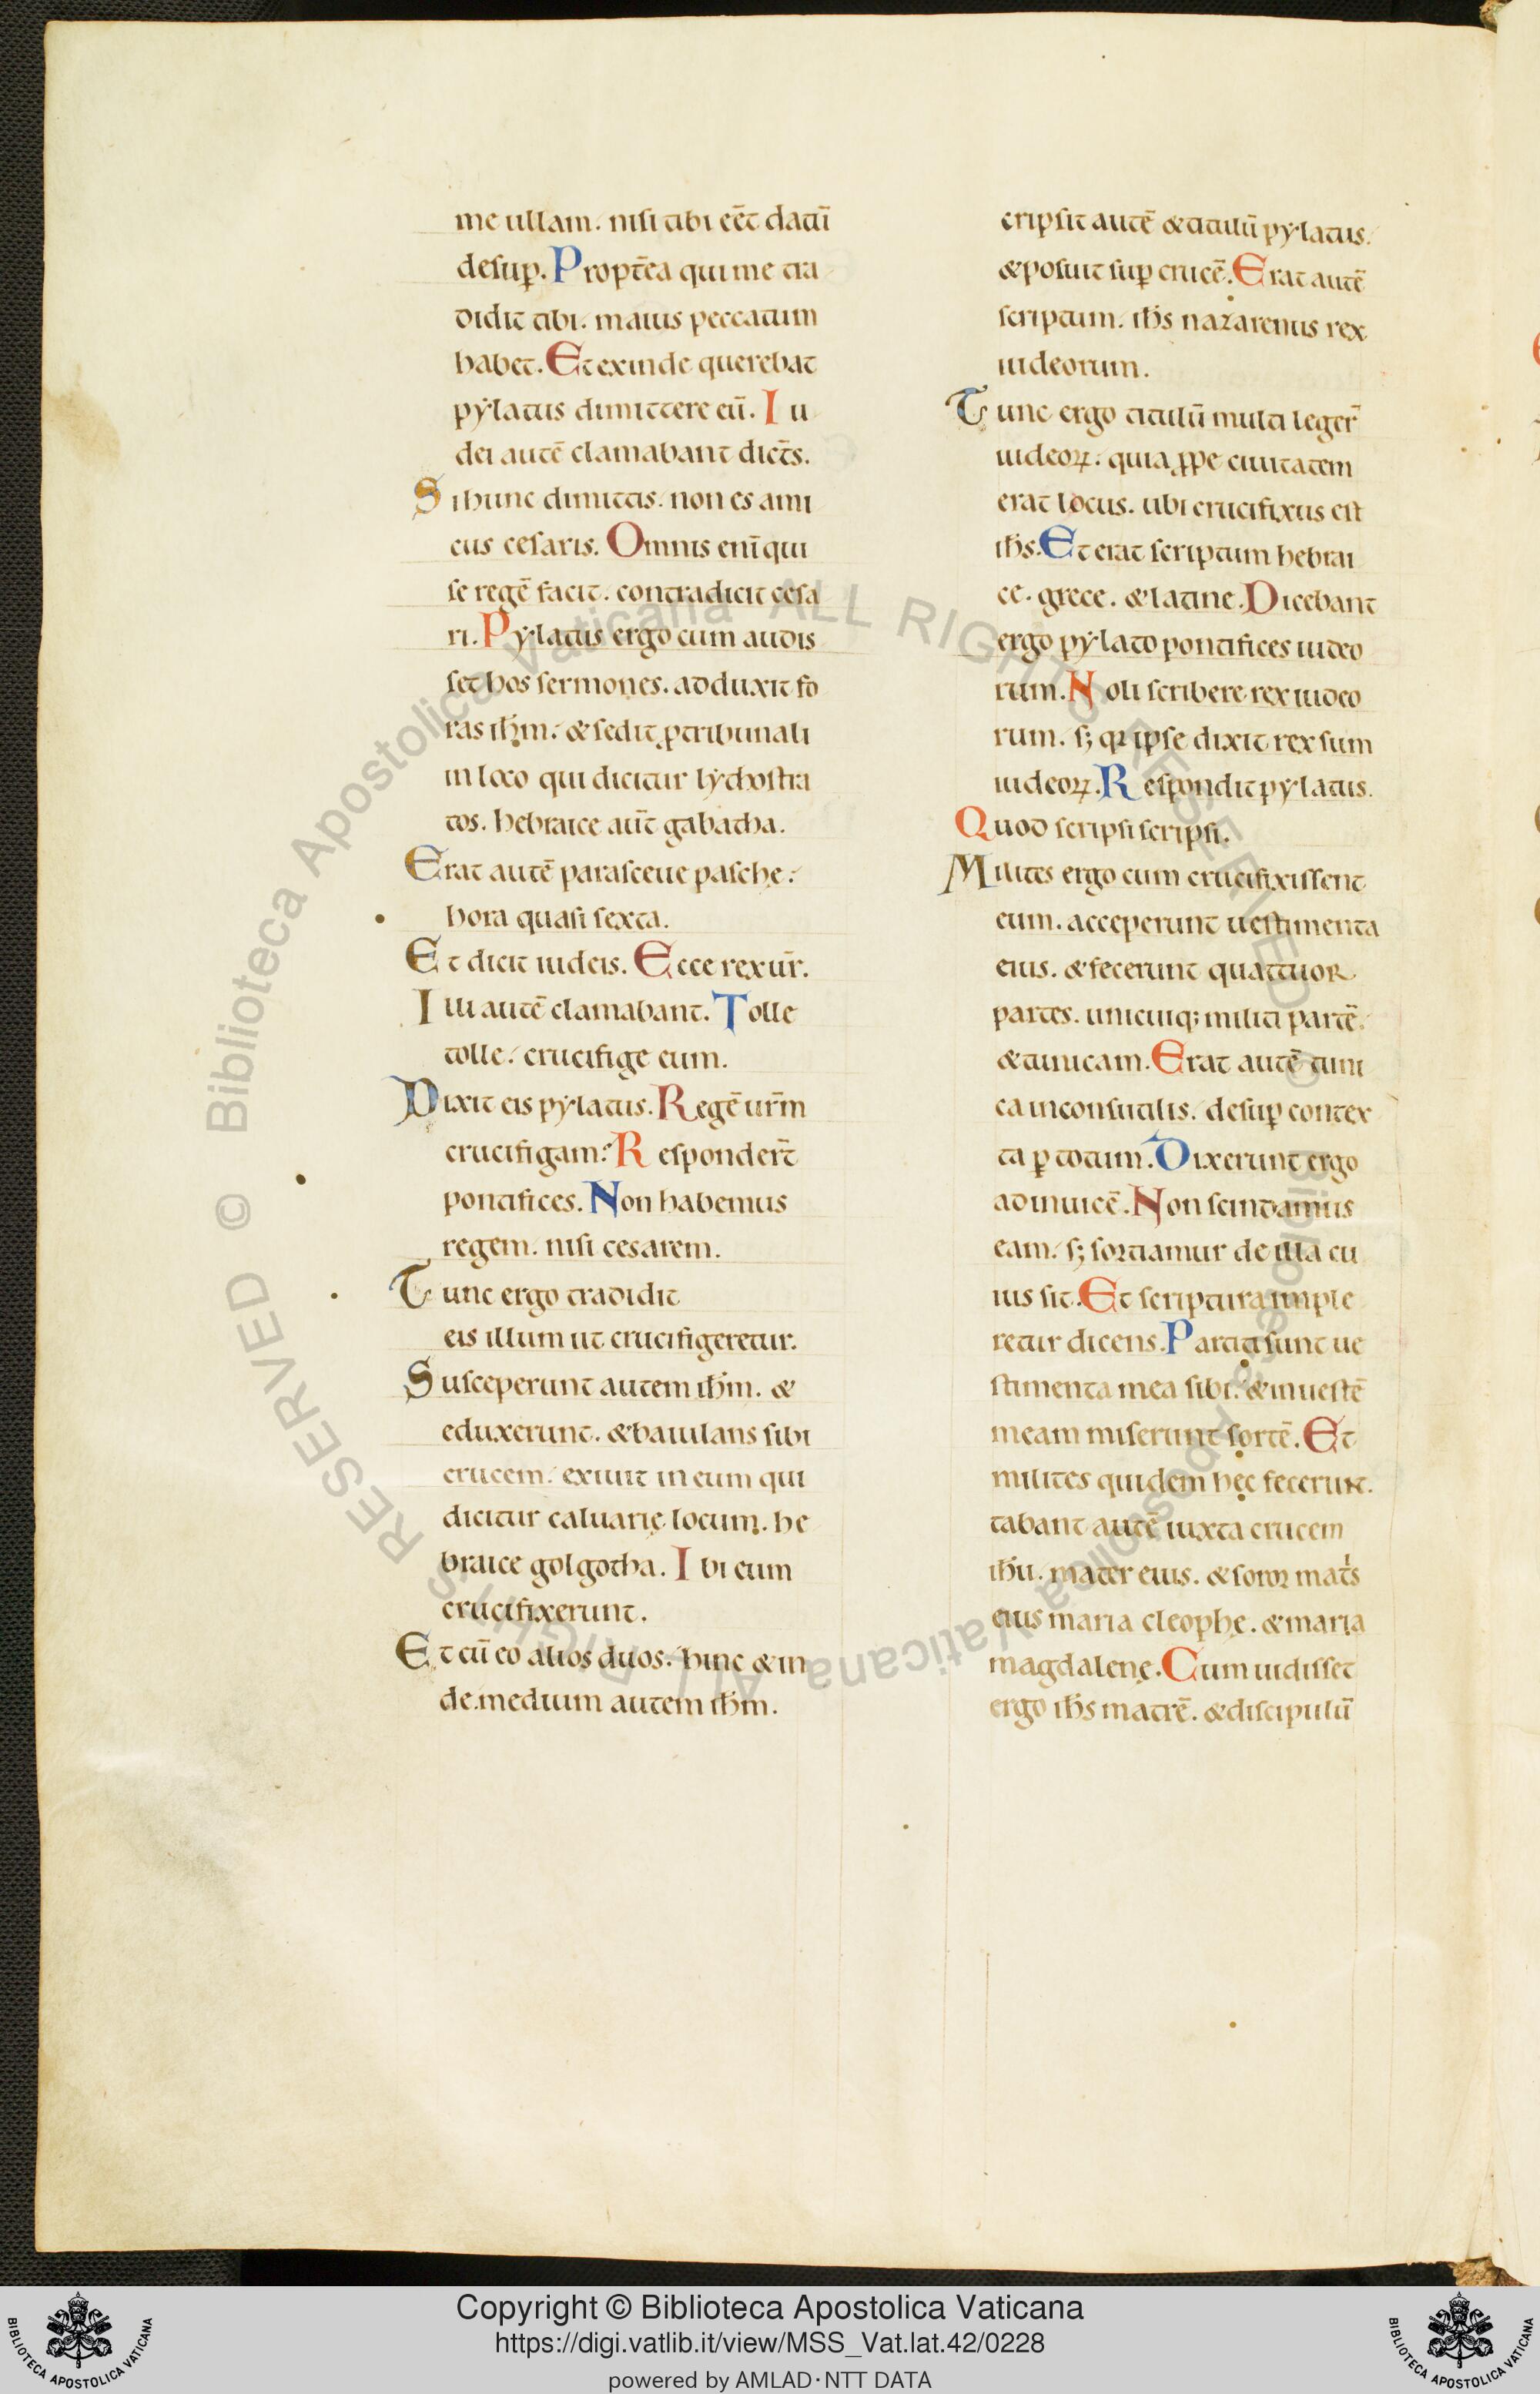 me ullam. nisi tibi eēt datū
desuꝑ. Proptēa qui me tra
didit tibi. maius peccatum
habet. Et exinde querebat
pẏlatus dimittere eū. Iu
dei autē clamabant dict̄s.
Si hunc dimittis. non es ami
cus cesaris. Omnis eni̅ qui
se regē facit. contradicit cesa
ri. Pẏlatus ergo cum audis
set hos sermones. adduxit fo
ras ih̅m. & sedit ꝓ tribunali
in loco qui dicitur lẏthostra
tos. hebraice aut̄ gabatha.
Erat autē parasceue pasche.
hora quasi sexta.
Et dicit iudeis. Ecce rex ur̄.
Illi autē clamabant. Tolle
tolle. crucifige eum.
Dixit eis pẏlatus. Regē ur̄m
crucifigam? Responder̄t
pontifices. Non habemus
regem. nisi cesarem.
Tunc ergo tradidit
eis illum ut crucifigeretur.
Susceperunt autem ih̅m. &
eduxerunt. & baiulans sibi
crucem. exiuit in eum qui
dicitur caluarię locum. he
braice golgotha. Ibi eum
crucifixerunt.
Et cū eo alios duos. hinc & in
de. medium autem ih̅m.
cripsit autē & titulū pẏlatus.
& posuit suꝑ crucē. Erat autē
scriptum. ih̅s nazarenus rex
iudeorum.
Tunc ergo titulū multi leger̄
iudeoꝝ. quia ꝓpe ciuitatem
erat locus. ubi crucifixus est
ih̅s. Et erat scriptum hebrai
ce. grece. & latine. Dicebant
ergo pẏlato pontifices iudeo
rum. Noli scribere rex iudeo
rum. s; qꝛ ipse dixit rex sum
iudeoꝝ. Respondit pẏlatus.
Quod scripsi scripsi.
Milites ergo cum crucifixissent
eum. acceperunt uestimenta
eius. & fecerunt quattuor
partes. unicuiq; militi partē.
& tunicam. Erat autē tuni
ca inconsutilis. desuꝑ contex
ta ꝑ totum. Dixerunt ergo
adinuicē. Non scindamus
eam. s; sortiamur de illa cu
ius sit. Et scriptura imple
retur dicens. Partiti sunt ue
stimenta mea sibi. & in uestē
meam miserunt sortē. Et
milites quidem hęc fecerunt.
tabant autē iuxta crucem
ih̅u. mater eius. & soror mat̄s
eius maria cleophe. & maria
magdalenę. Cum uidisset
ergo ih̅s matrē. & discipulū
© Biblioteca Apostolica Vaticana ALL RIGHTS RESERVED © Biblioteca Apostolica Vaticana ALL RIGHTS RESERVED
Copyright © Biblioteca Apostolica Vaticana
https://digi.vatlib.it/view/MSS_Vat.lat.42/0228
powered by AMLAD·NTT DATA
BIBLIOTECA APOSTOLICA VATICANA
BIBLIOTECA APOSTOLICA VATICANA